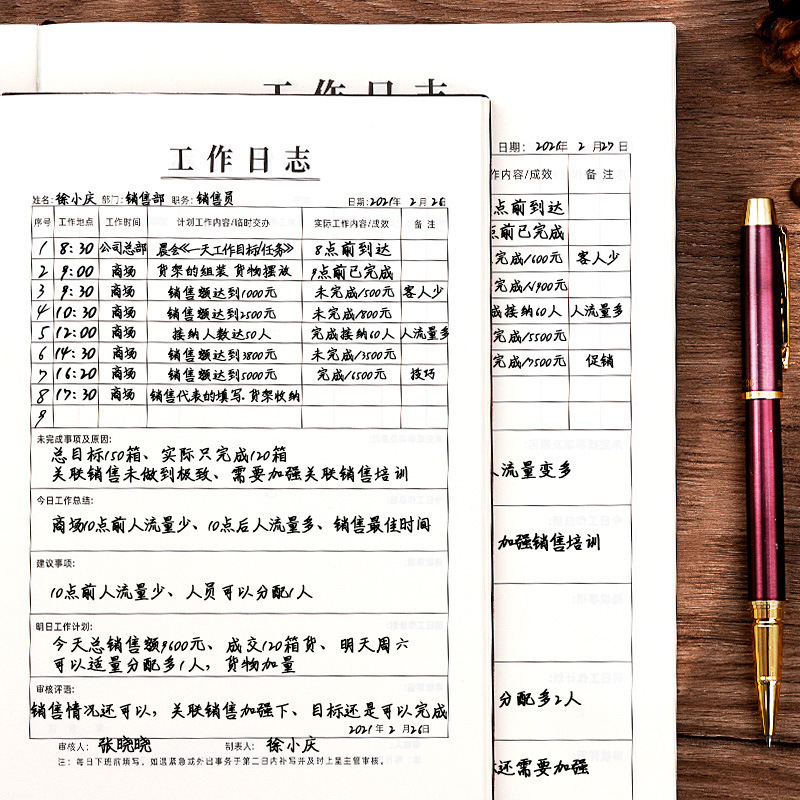 工作日志
姓名: 徐小庆 部门: 销售部 职务: 销售员 日期: 2021年 2月26
序号 工作地点 工作时间 计划工作内容/临时交办 实际工作内容/成效 备注
1 8:30 公司总部 晨会《一天工作目标/任务》 8点前到达
2 9:00 商场 货架的组装 货物摆放 9点前已完成
3 9:30 商场 销售额达到1000元 未完成/500元 客人少
4 10:30 商场 销售额达到2500元 未完成/800元
5 12:00 商场 接纳人数达50人 完成接纳60人 人流量多
6 14:30 商场 销售额达到3800元 未完成/3500元
7 16:20 商场 销售额达到5000元 完成/6500元 技巧
8 17:30 商场 销售代表的填写.货架收纳
9
未完成事项及原因:
总目标150箱、实际只完成120箱
关联销售未做到极致、需要加强关联销售培训
今日工作总结:
商场10点前人流量少、10点后人流量多、销售最佳时间
建议事项:
10点前人流量少、人员可以分配1人
明日工作计划:
今天总销售额9600元、成交120箱货、明天周六
可以适量分配多1人,货物加量
审核评语:
销售情况还可以,关联销售加强下、目标还是可以完成
2021年 2月26日
审核人: 张晓晓 制表人: 徐小庆
注: 每日下班前填写,如遇紧急或外出事务于第二日内补写并及时上呈主管审核。
工作日志
日期: 2021年 2月27日
作内容/成效 备注
点前到达
点前已完成
完成/600元 客人少
完成/900元
成接纳60人 人流量多
完成/5500元
完成/7500元 促销
人流量变多
加强销售培训
分配多2人
还需要加强